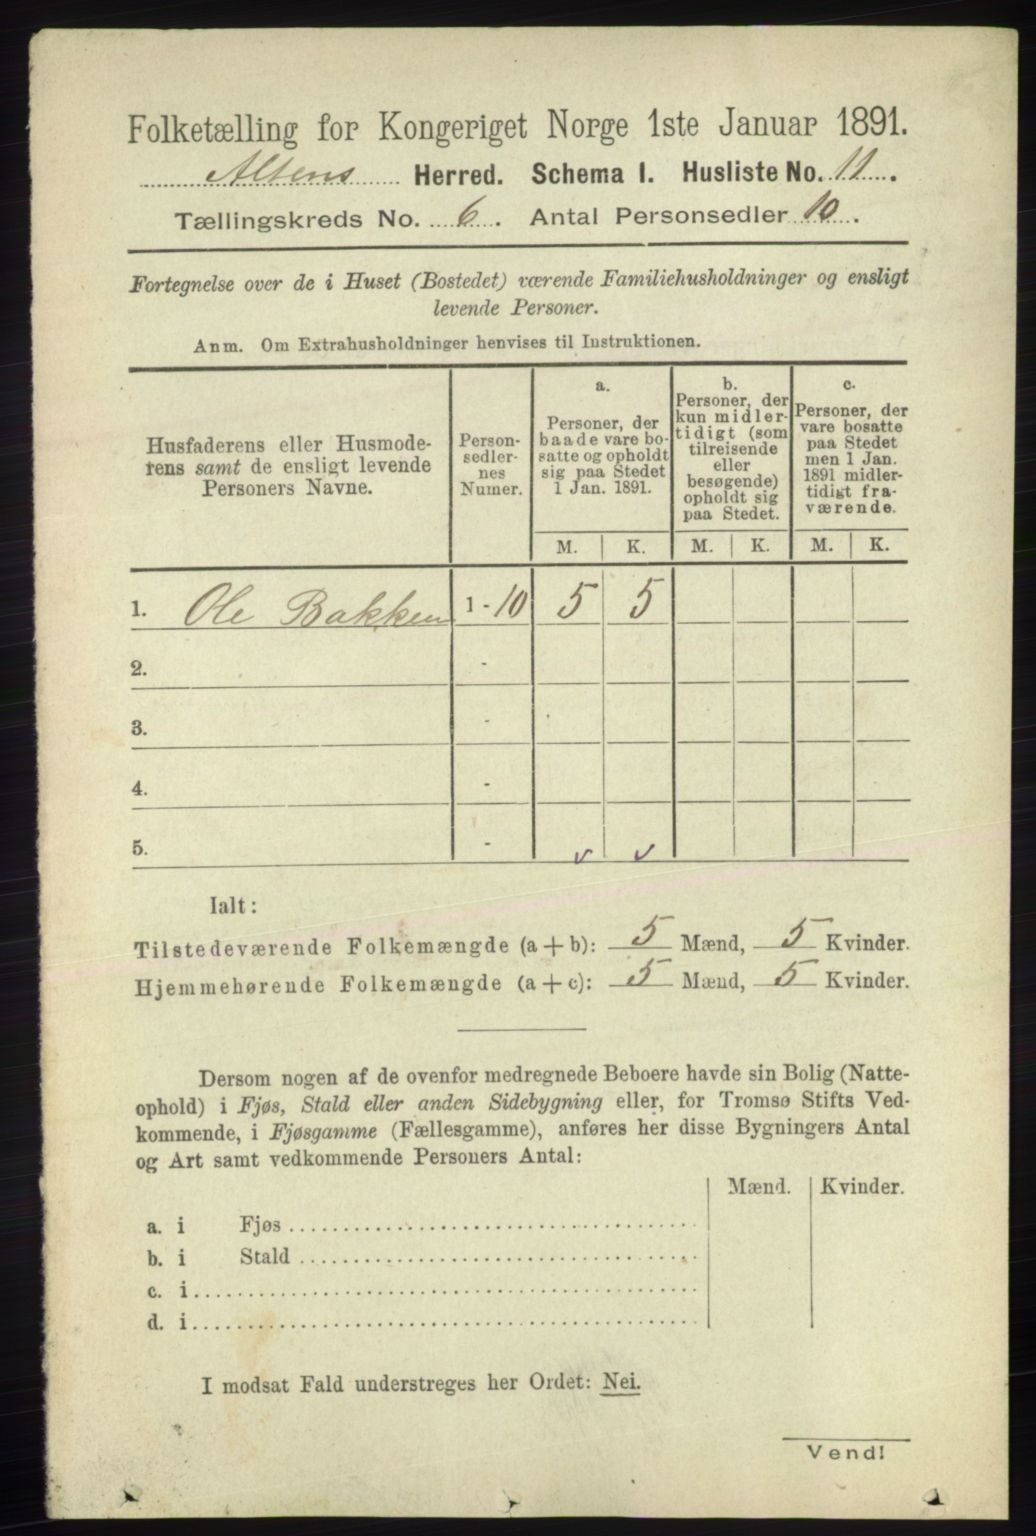 Folketælling for Kongeriget Norge 1ste Januar 1891.
Altens Herred. Schema I. Husliste No. 11.
Tællingskreds No. 6. Antal Personsedler 10.
Fortegnelse over de i Huset (Bostedet) værende Familiehusholdninger og ensligt
levende Personer.
Anm. Om Extrahusholdninger henvises til Instruktionen.
Husfaderens eller Husmode-
rens samt de ensligt levende
Personers Navne.
Person-
sedler-
nes
Numer.
a.
Personer, der
baade vare bo-
satte og opholdt
sig paa Stedet
1 Jan. 1891.
b.
Personer, der
kun midler-
tidigt (som
tilreisende
eller
besøgende)
opholdt sig
paa Stedet.
c.
Personer, der
vare bosatte
paa Stedet
men 1 Jan.
1891 midler-
tidigt fra-
værende.
M. K. M. K. M. K.
1. Ole Bakken 1 - 10 5 5
2. -
3. -
4. -
5. -
Ialt:
Tilstedeværende Folkemængde (a + b): 5 Mænd, 5 Kvinder.
Hjemmehørende Folkemængde (a + c): 5 Mænd, 5 Kvinder.
Dersom nogen af de ovenfor medregnede Beboere havde sin Bolig (Natte-
ophold) i Fjøs, Stald eller anden Sidebygning eller, for Tromsø Stifts Ved-
kommende, i Fjøsgamme (Fællesgamme), anføres her disse Bygningers Antal
og Art samt vedkommende Personers Antal:
Mænd. Kvinder.
a. i Fjøs
b. i Stald
c. i
d. i
I modsat Fald understreges her Ordet: Nei.
Vend!